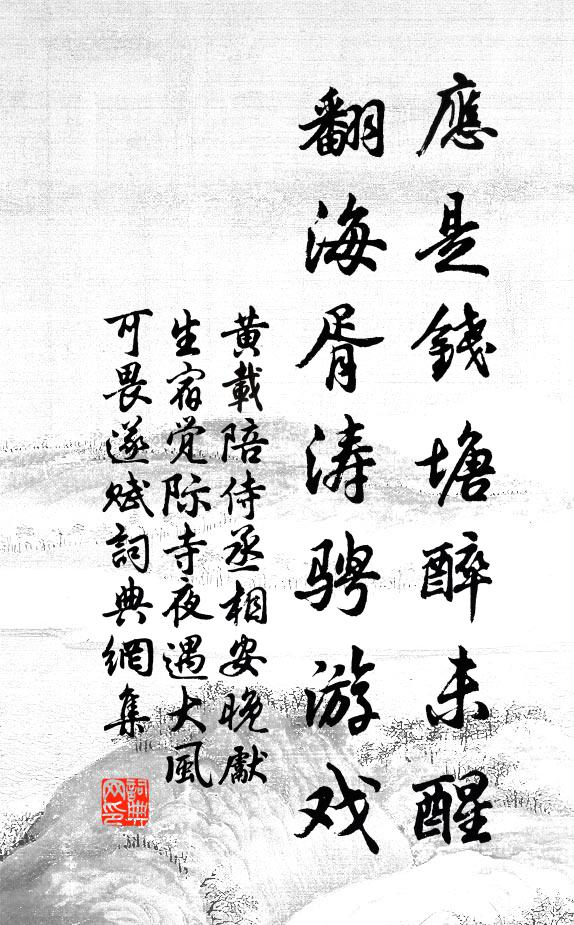 應是錢塘醉未醒
翻海胥涛骋游戏
黄載陪侍丞相安晚獻
生宿觉际寺夜遇大風
可畏遂赋詞典網集
詞典網印